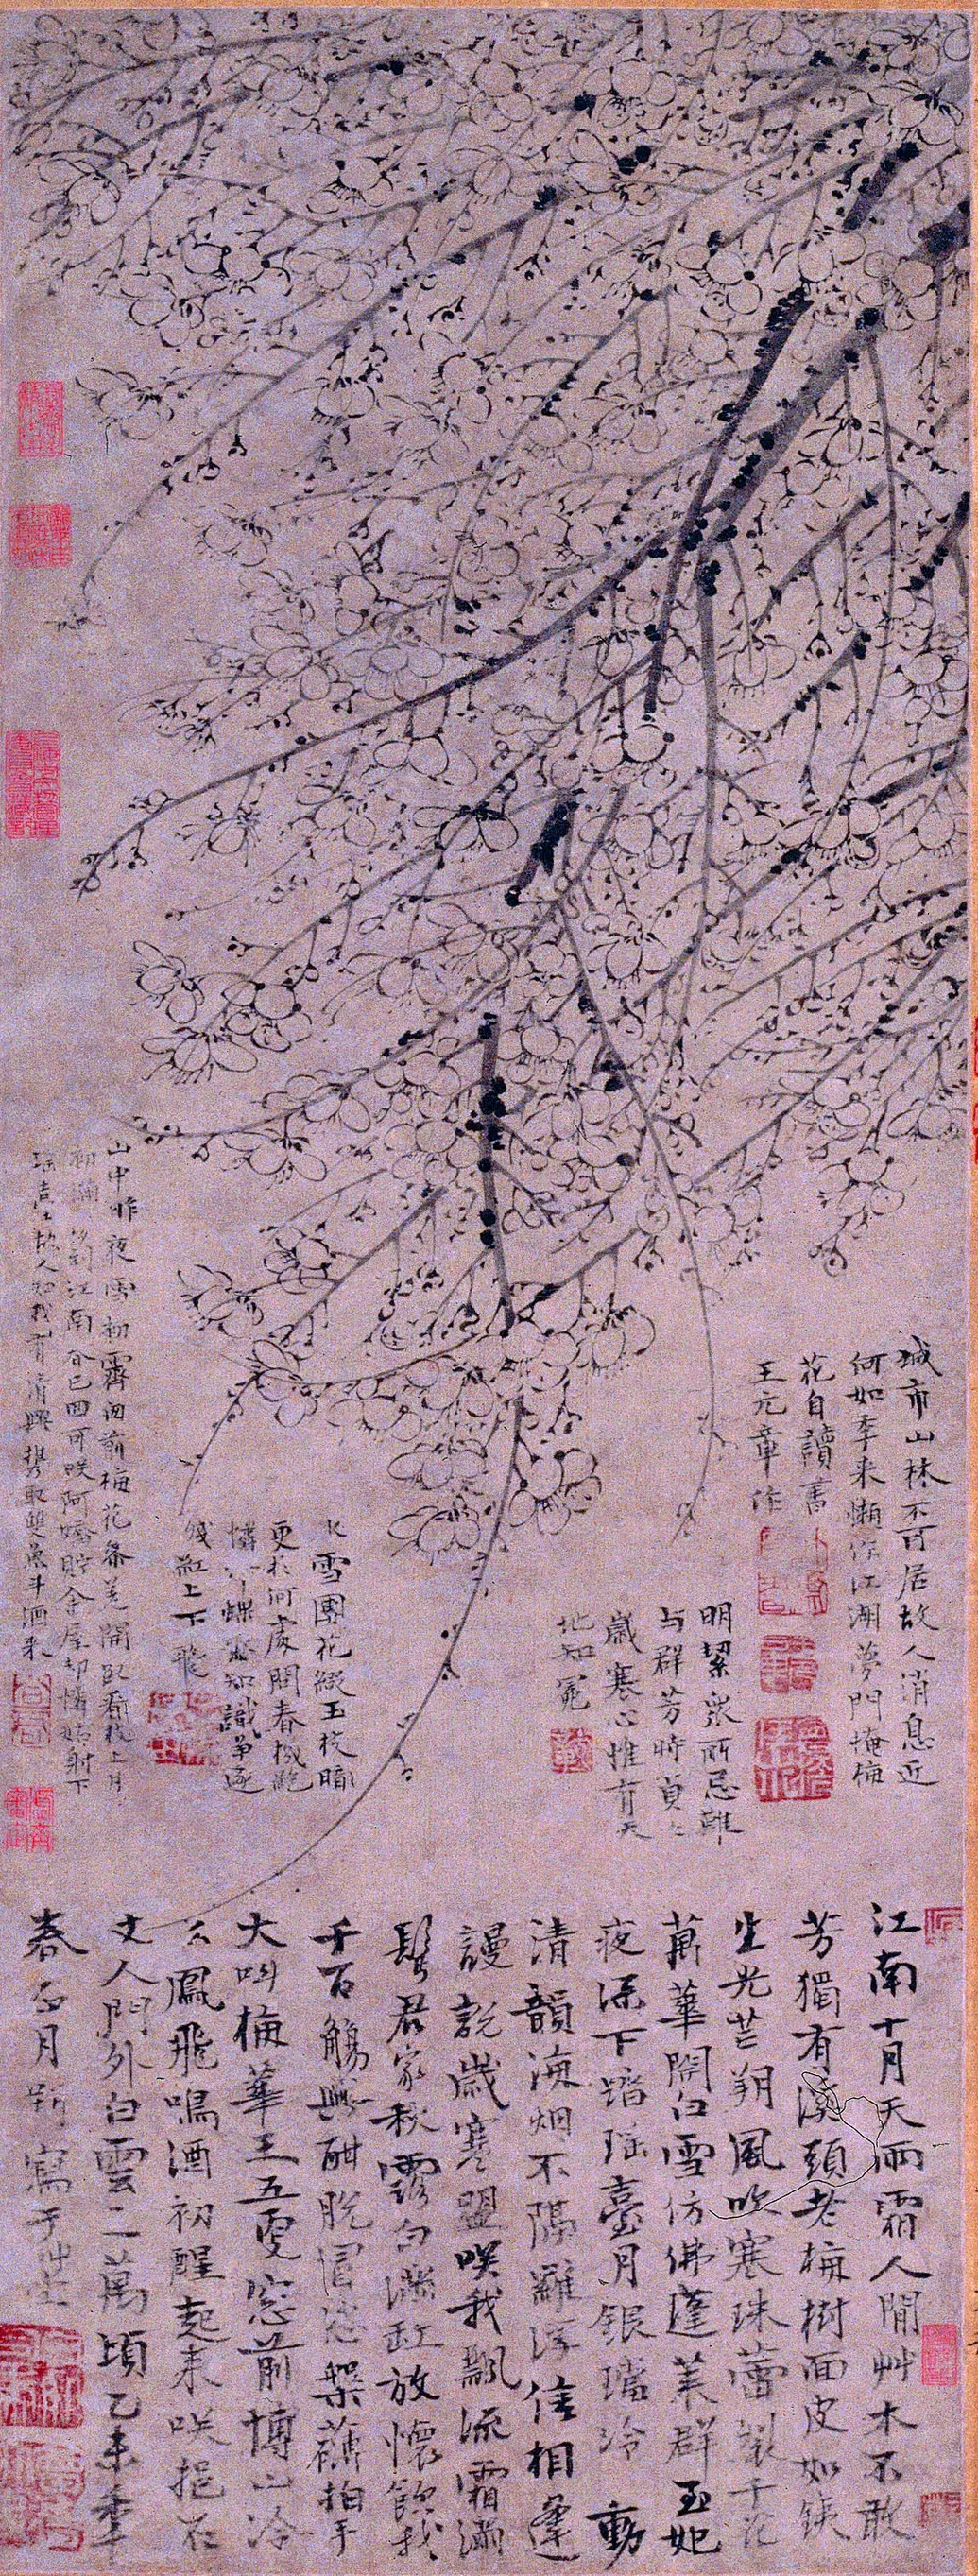 城市山林不可居故人消息近
何如季来懶作江湖夢門掩梅
花自讀書
王元章作
明絜眾所忌難
与群芳時貞二
歲寒心惟有天
地知冕
冰雪團花綴玉枝
更於何處問春機
憐蝶知識爭逐
殘缸上下飛
山中昨夜雪初霽面前梅花開臥看枝上月
到江南春已回可咲阿嬌貯金屋却憐姑射下
瑶臺故人知我有清興攜取雙魚斗酒来
江南十月天雨霜人間艸木不敢
芳獨有溪頭老梅樹面皮如鉄
生光芒朔風吹寒珠蕾裂千花
萬華開白雪仿佛蓬莱群玉妃
夜深下踏瑶臺月銀璫泠動
清韻海烟不隔羅浮信相逢
謾說歲寒盟咲我飄流霜滿
鬢君家秋露白滿缸放懷飲我
千百觴興酣脫冒恣槃礴拍手
大叫梅華王五更窓前博山冷
么鳳飛鳴酒初醒起来咲挹石
丈人門外白雲二萬頃乙未季
春正月朔寫于